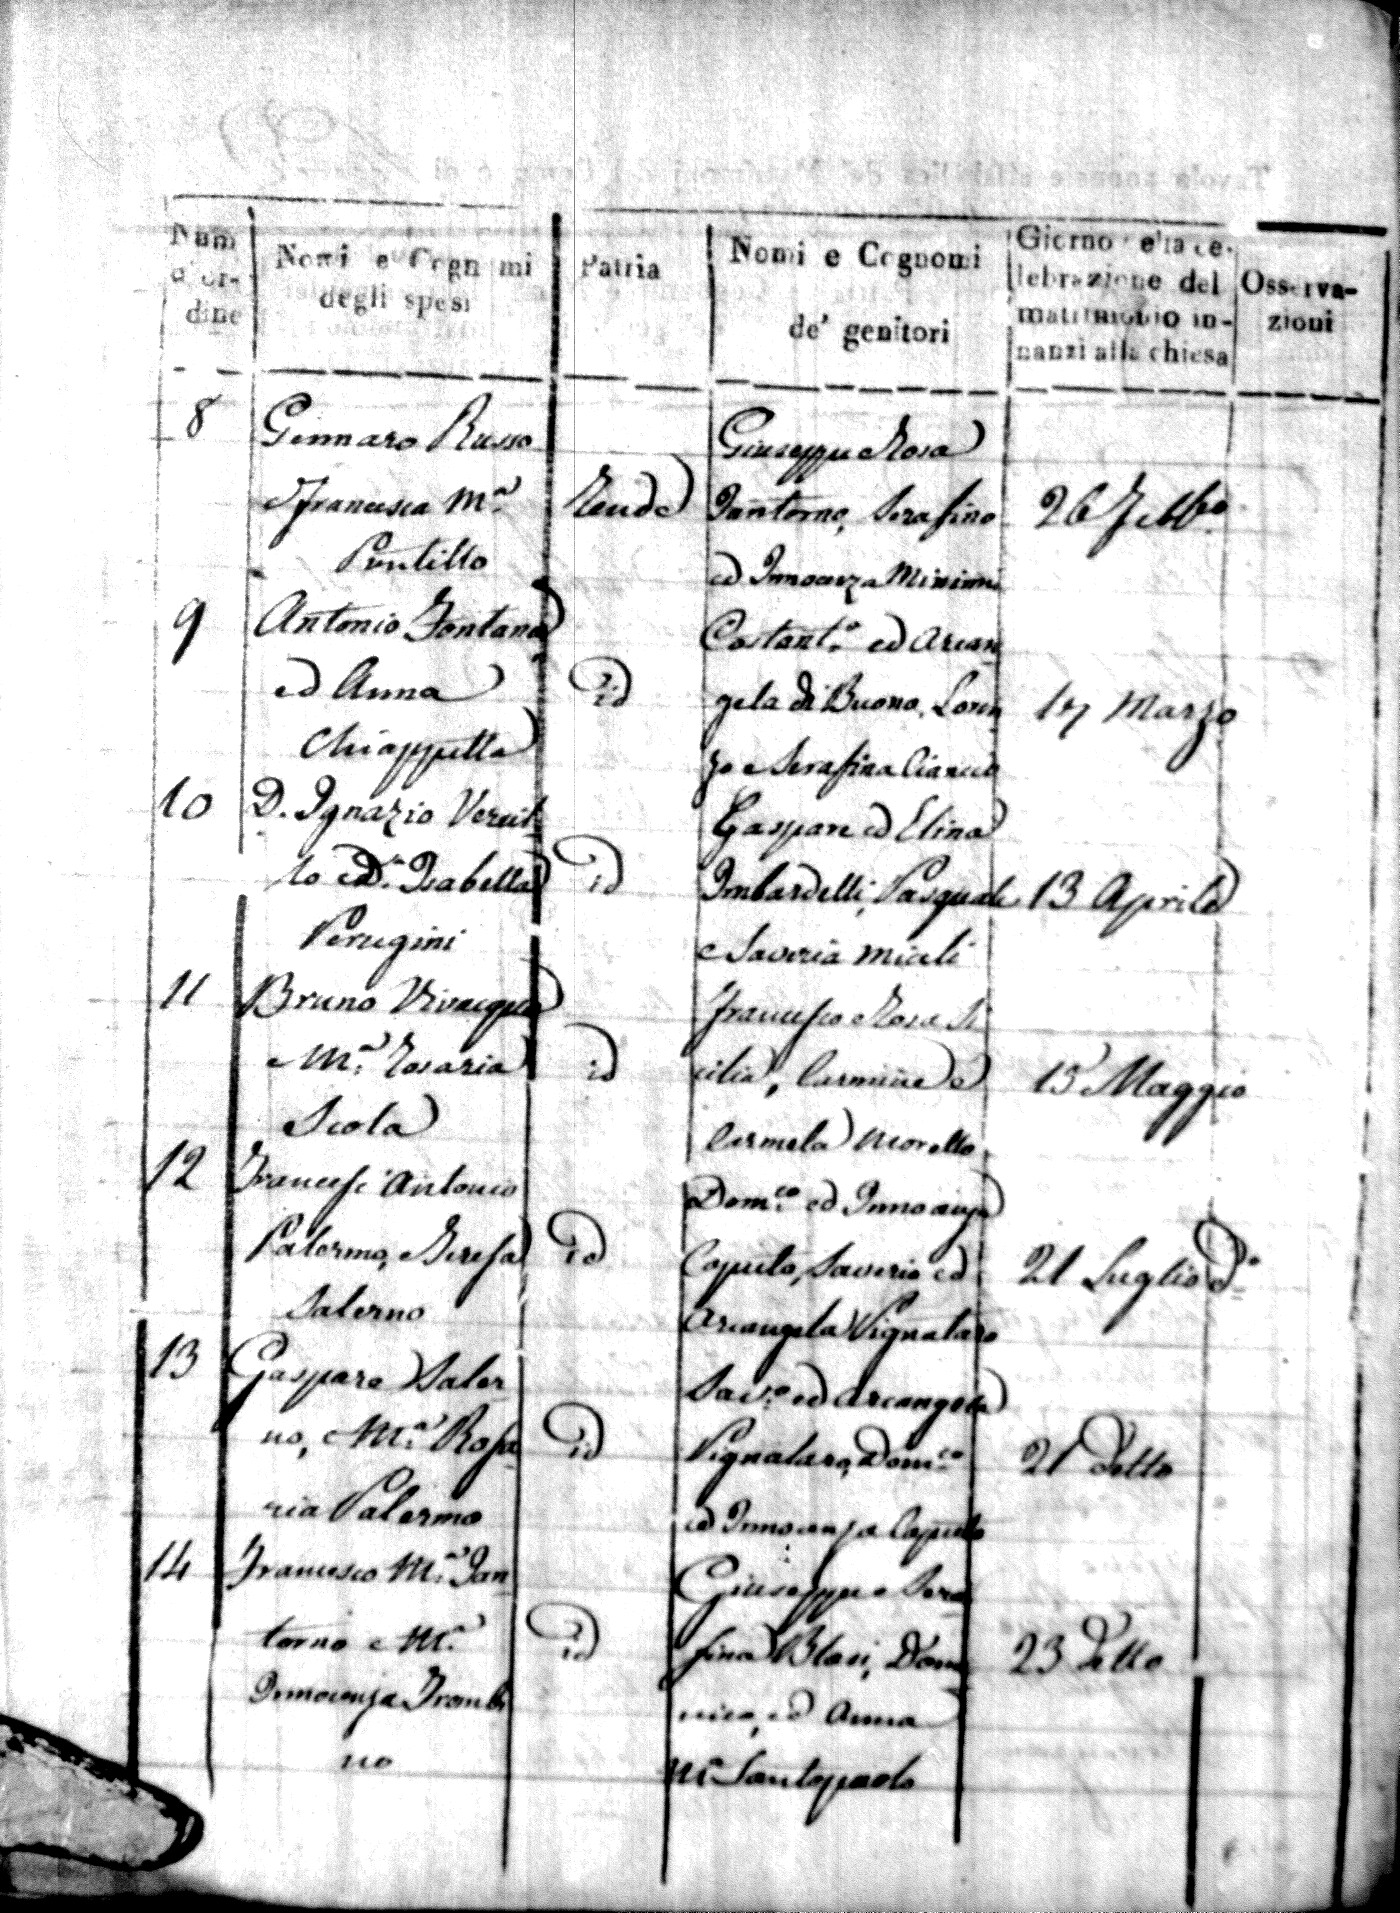 Num
d'or-
dine
Nomi e Cognomi
degli sposi
Patria
Nomi e Cognomi
de' genitori
Giorno della ce-
lebrazione del
matrimonio in-
nanzi alla chiesa
Osserva-
zioni
8
Gennaro Russo
e Francesca M.a
Puntillo
Rende
Giuseppe e Rosa
Jantorno, Serafino
ed Innocenza
26 Febb.o
9
Antonio Fontana
ed Anna
Chiappetta
id
Costant.o ed Arcan
gela di Buono, Loren
zo e Serafina
17 Marzo
10
D. Ignazio Vercil
lo e D.a Isabella
Perugini
id
Gaspare ed Elina
Imbardelli, Pasquale
e Saveria Miceli
13 Aprile
11
Bruno Vivacqua
e M.a Rosaria
Scola
id
Francesco e Rosa Si
cilia, Carmine e
Carmela Morello
15 Maggio
12
Francesc'Antonio
Palermo, e Teresa
Salerno
id
Dom.co ed Innocenza
Caputo, Saverio ed
Arcangela Vignataro
21 Luglio d.o
13
Gaspare Saler
no, e M.a Rosa
ria Palermo
id
Sav.o ed Arcangela
Vignataro, Dom.co
ed Innocenza Caputo
21 detto
14
Francesco M.a Jan
torno e M.a
Innocenza Trombi
no
id
Giuseppe e Sera
fina Blasi, Dome
nico, ed Anna
M.a Santopaolo
23 detto